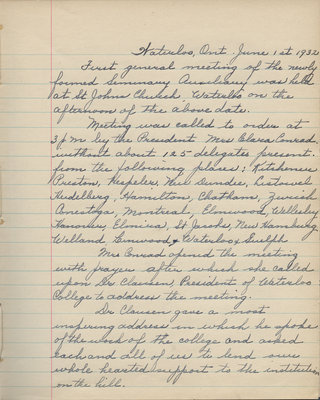 Waterloo, Ont. June 1st 1932
First general meeting of the newly
formed Seminary Auxiliary was held
at St Johns Church Waterloo on the
afternoon of the above date.
Meeting was called to order at
3 p m by the President Mrs Clara Conrad.
without about 125 delegates present.
from the following places; Kitchener
Preston, Hespeler, New Dundee, Listowel
Heidelberg, Hamilton, Chatham, Zurich
Conestoga, Montreal, Elmwood, Wellesley
Hanover, Elmira, St Jacobs, New Hamburg
Welland Linwood & Waterloo & Guelph
Mrs Conrad opened the meeting
with prayer after which she called
upon Dr Clausen, President of Waterloo
College to address the meeting.
Dr Clausen gave a most
inspiring address in which he spoke
of the work of the college and asked
each and all of us to lend our
whole hearted support to the institution
on the hill.